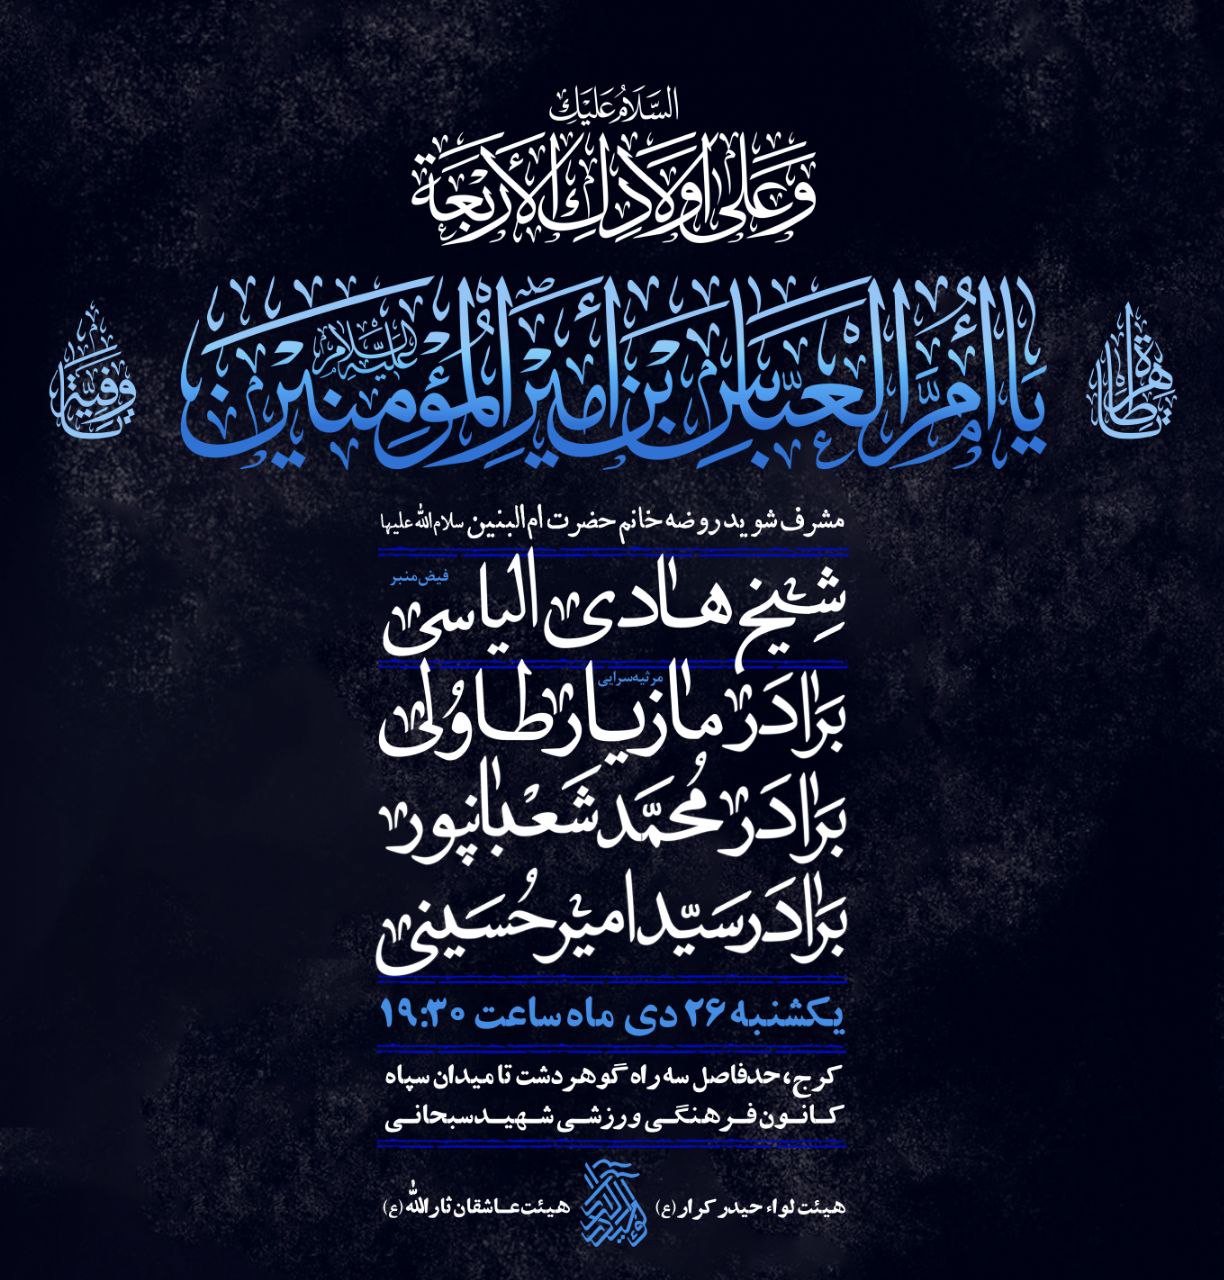 السَّلَامُ عَلَیْكِ
وَعَلَى اَوْلَادِكِ الأَرْبَعَة
یا طاهرة
یَا أُمَّ الْعَبَّاسِ بْنِ أَمِیرِ الْمُؤْمِنِینَ عَلَیْهِ السَّلام
یا وَفِیَّة
مشرف شوید روضه خانم حضرت ام البنین سلام الله علیها
فیض منبر
شِیخ هادی الیاسی
مرثیه سرایی
بَرادَر مازیار طاوُلی
بَرادَر مُحمَّد شَعْبانپور
بَرادَر سَیّد امیر حُسَینی
یکشنبه ۲۶ دی ماه ساعت ۱۹:۳۰
کرج، حدفاصل سه راه گوهردشت تا میدان سپاه
کانون فرهنگی ورزشی شهید سبحانی
هیئت لواء حیدر کرار (ع) هیئت عاشقان ثارالله (ع)